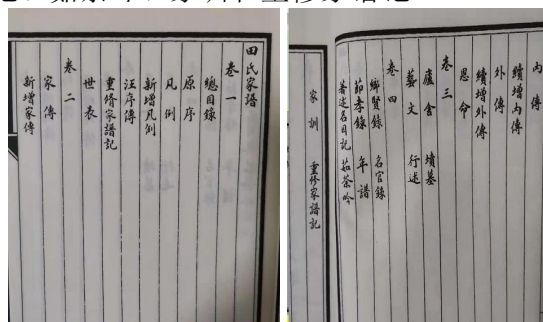 田氏家譜
卷一
總目錄
原序
凡例
新增凡例
汪序傳
重脩家譜記
世表
卷二
家傳
新增家傳
內傳
續增內傳
外傳
續增外傳
恩命
卷三
廬舍 墳墓
藝文 行述
卷四
鄉賢錄 名宦錄
節孝錄 年譜
著述名目記 茹荼吟
家訓 重修家譜記